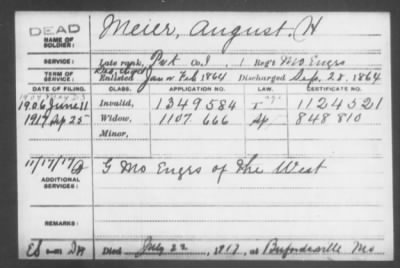 DEAD
NAME OF SOLDIER:
Meier, August H
SERVICE:
Late rank, Pvt Co. I, 1 Reg't Mo Engrs
TERM OF SERVICE:
Enlisted Jan Feb 1864 Discharged Sep. 28, 1864
DATE OF FILING. CLASS. APPLICATION NO. LAW. CERTIFICATE NO.
1906 June 11 Invalid, 1349584 1124321
1917 Sep 25 Widow, 1107 666 848 810
Minor,
11/17/17
ADDITIONAL SERVICES:
G Mo Engrs of the West
REMARKS:
Died July 22, 1917, at Mo